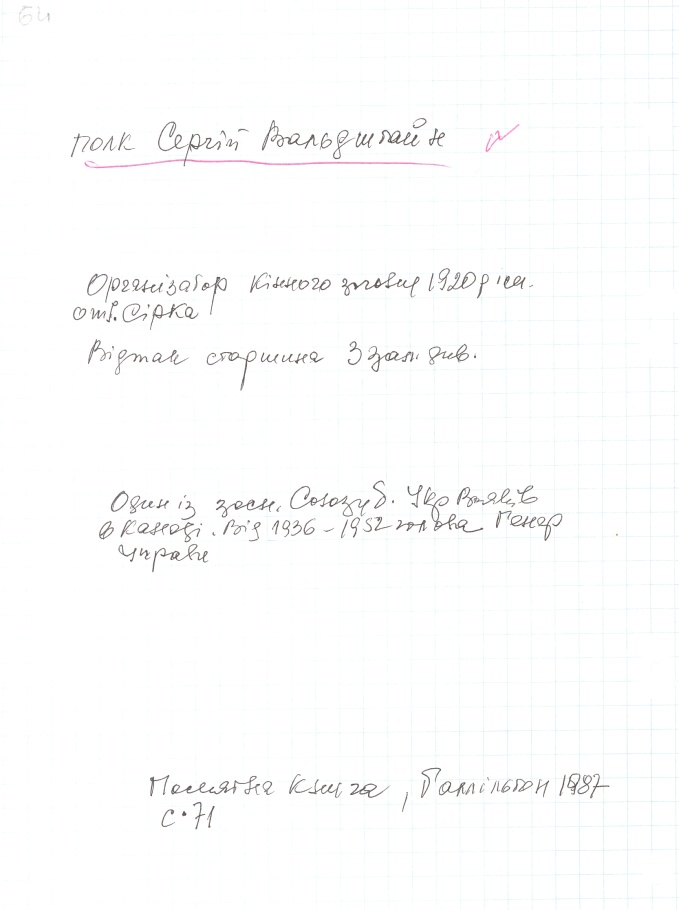 64
полк Сергій Вальдштайн
Організатор кінного 1920 р
от. Сірка
Відтак старшина 3 зал. див.
Один із засн. Союзу б. Укр Вояків
в Канаді. Від 1936 – 1952 голова Генер
Управи
Памятна Книга, Гамільтон 1987
с. 71